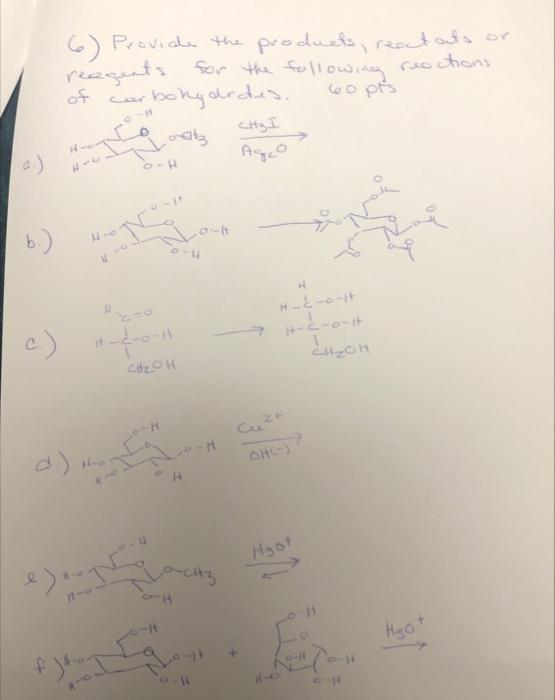 6) Provide the products, reactants or
reagents for the following reactions
of carbohydrdes. 60 pts
a.)
O-H
H-O
H-O
O
O-CH3
O-H
CH3I
Ag2O
b.)
O-H
H-O
H-O
O
O-H
O-H
O
O
O
O
O
c.)
H
C=O
H-C-O-H
CH2OH
H
H-C-O-H
H-C-O-H
CH2OH
d.)
O-H
H-O
H-O
O
O-H
O-H
Cu2+
OH(-)
e)
O-H
H-O
H-O
O
O-CH3
O-H
H3O+
f)
O-H
H-O
H-O
O
O-H
O-H
+
O-H
O
O-H
H-O
O-H
O-H
H3O+